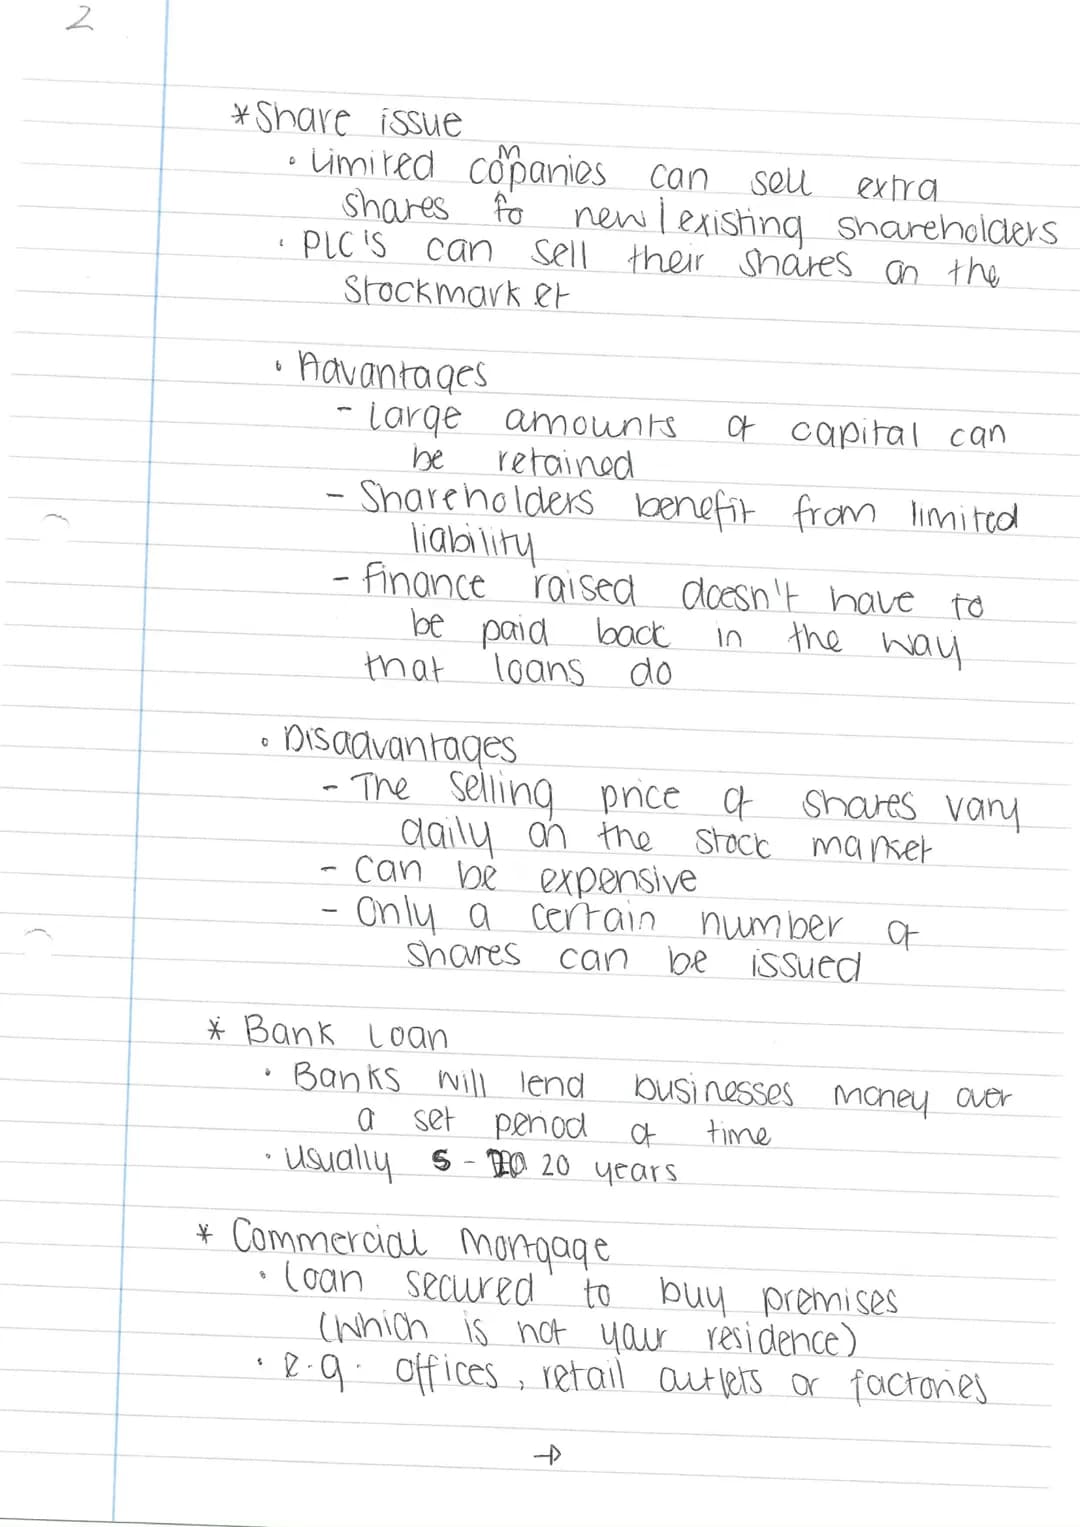 2
*Share issue
• Limited companies can sell extra
shares to new/existing shareholders
• PLC's can sell their shares on the
Stockmarket
• Advantages
- Large amounts of capital can
be retained
- Shareholders benefit from limited
liability
- Finance raised doesn't have to
be paid back in the way
that loans do
• Disadvantages
- The selling price of shares vary
daily on the stock market
- Can be expensive
- Only a certain number of
shares can be issued
* Bank Loan
• Banks will lend businesses money over
a set period of time
• Usually 5 - 20 years
* Commercial Mortgage
• Loan secured to buy premises
(which is not your residence)
• e.g. offices, retail outlets or factories
→